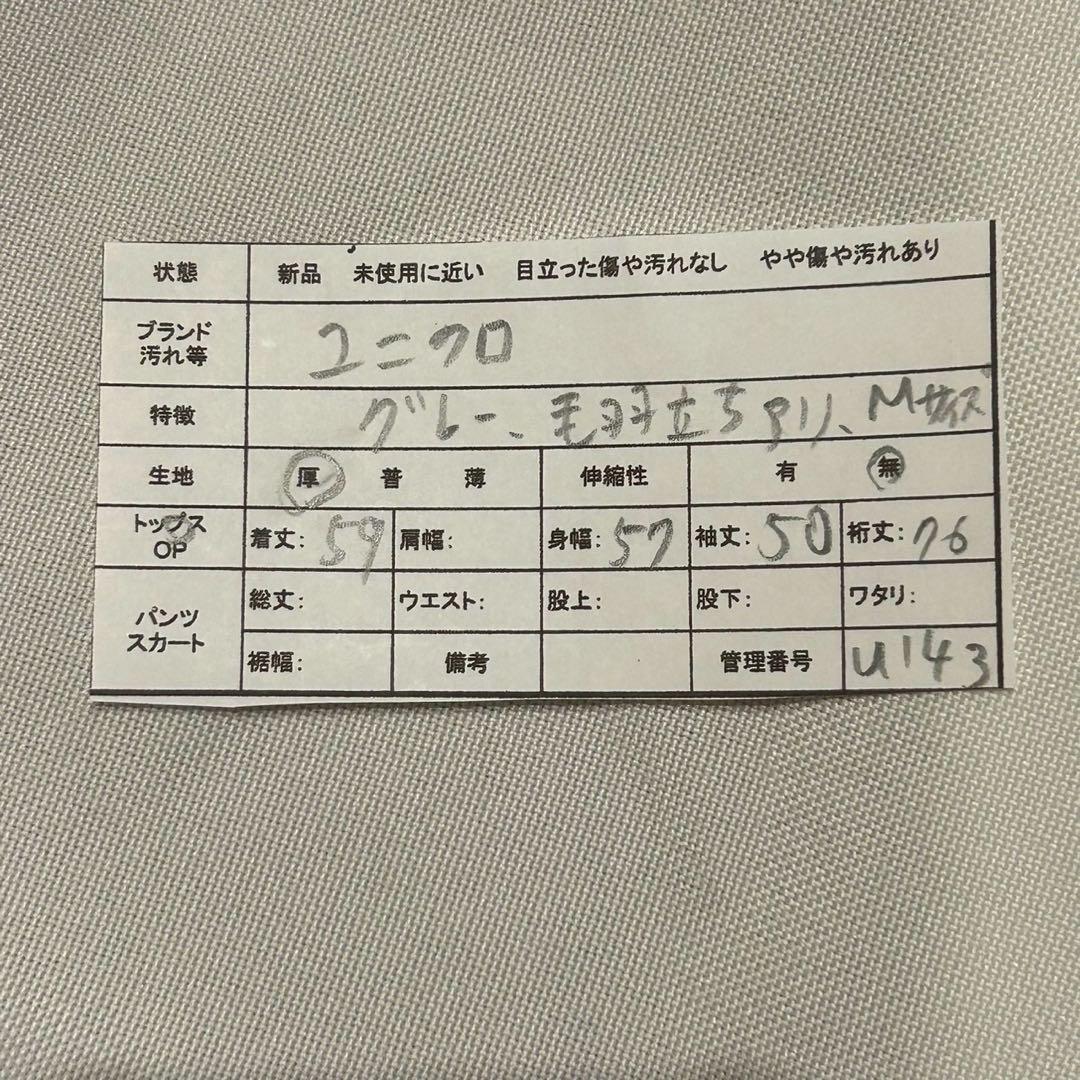 状態 新品 未使用に近い 目立った傷や汚れなし やや傷や汚れあり
ブランド 汚れ等 ユニクロ
特徴 グレー、毛羽立ちアリ、Mサイズ
生地 厚 普 薄 伸縮性 有 無
トップス OP 着丈: 59 肩幅: 身幅: 57 袖丈: 50 裄丈: 76
パンツ スカート 総丈: ウエスト: 股上: 股下: ワタリ:
裾幅: 備考 管理番号 U143